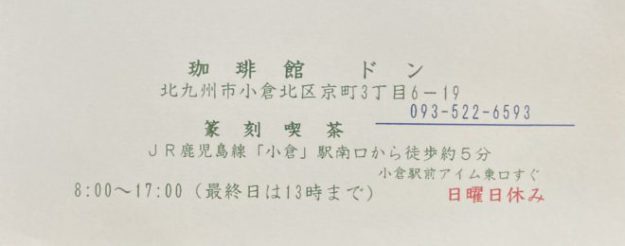 珈琲館 ドン
北九州市小倉北区京町3丁目6−19
093-522-6593
篆刻喫茶
JR鹿児島線「小倉」駅南口から徒歩約5分
小倉駅前アイム東口すぐ
8:00〜17:00（最終日は13時まで）
日曜日休み